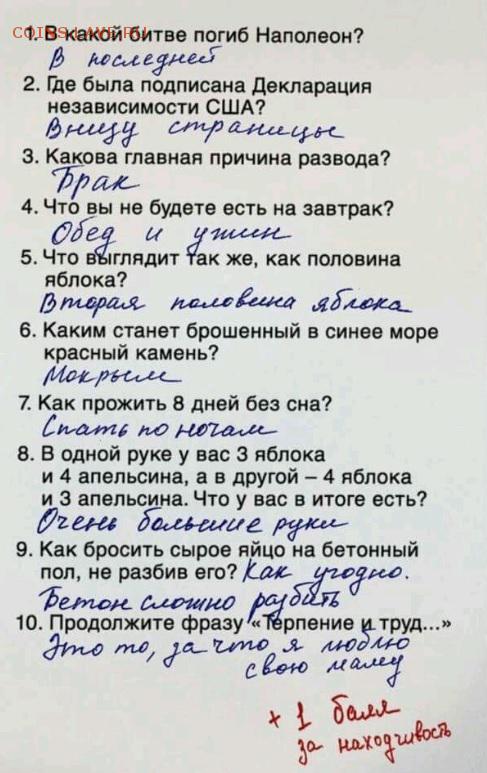 COINS.LAVE.RU
1. В какой битве погиб Наполеон?
В последней
2. Где была подписана Декларация
независимости США?
Внизу страницы
3. Какова главная причина развода?
Брак
4. Что вы не будете есть на завтрак?
Обед и ужин
5. Что выглядит так же, как половина
яблока?
Вторая половина яблока
6. Каким станет брошенный в синее море
красный камень?
Мокрым
7. Как прожить 8 дней без сна?
Спать по ночам
8. В одной руке у вас 3 яблока
и 4 апельсина, а в другой – 4 яблока
и 3 апельсина. Что у вас в итоге есть?
Очень большие руки
9. Как бросить сырое яйцо на бетонный
пол, не разбив его? Как угодно.
Бетон сложно разбить
10. Продолжите фразу «Терпение и труд...»
Это то, за что я люблю
свою маму
+ 1 балл
за находчивость